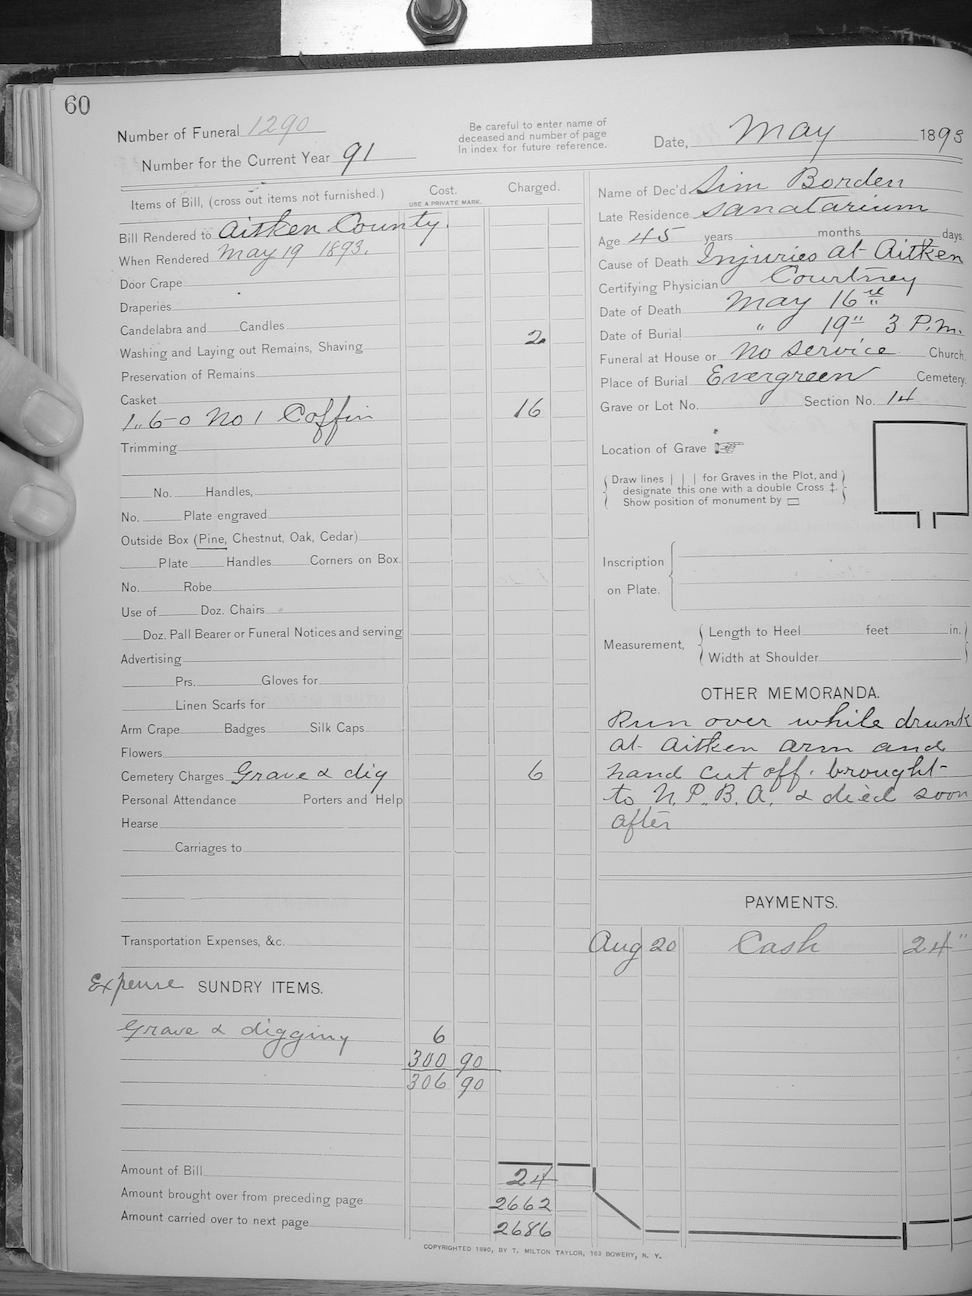 60
Number of Funeral 1290
Number for the Current Year 91
Be careful to enter name of
deceased and number of page
in index for future reference.
Date, May 1893
Items of Bill, (cross out items not furnished.)
Cost.
USE A PRIVATE MARK.
Charged.
Bill Rendered to Aitken County.
When Rendered May 19 1893.
Door Crape
Draperies
Candelabra and Candles
Washing and Laying out Remains, Shaving 2
Preservation of Remains
Casket
1. 6-0 No 1 Coffin 16
Trimming
No. Handles,
No. Plate engraved
Outside Box (Pine, Chestnut, Oak, Cedar)
Plate Handles Corners on Box
No. Robe
Use of Doz. Chairs
Doz. Pall Bearer or Funeral Notices and serving
Advertising
Prs. Gloves for
Linen Scarfs for
Arm Crape Badges Silk Caps
Flowers
Cemetery Charges Grave & dig 6
Personal Attendance Porters and Help
Hearse
Carriages to
Transportation Expenses, &c.
Expense SUNDRY ITEMS.
Grave & digging 6
300 90
306 90
Amount of Bill 24
Amount brought over from preceding page 2662
Amount carried over to next page 2686
Name of Dec'd Sim Borden
Late Residence Sanatarium
Age 45 years months days
Cause of Death Injuries at Aitken
Certifying Physician Courtney
Date of Death May 16
Date of Burial " 19" 3 P.M.
Funeral at House or No service Church
Place of Burial Evergreen Cemetery.
Grave or Lot No. Section No. 14
Location of Grave ☞
Draw lines | | | for Graves in the Plot, and
designate this one with a double Cross ‡.
Show position of monument by ▭
Inscription
on Plate.
Measurement,
Length to Heel feet in.
Width at Shoulder
OTHER MEMORANDA.
Run over while drunk
at Aitken arm and
hand cut off. brought
to N. P. B. A. & died soon
after
PAYMENTS.
Aug 20 Cash 24 "
COPYRIGHTED 1890, BY T. MILTON TAYLOR, 163 BOWERY, N. Y.